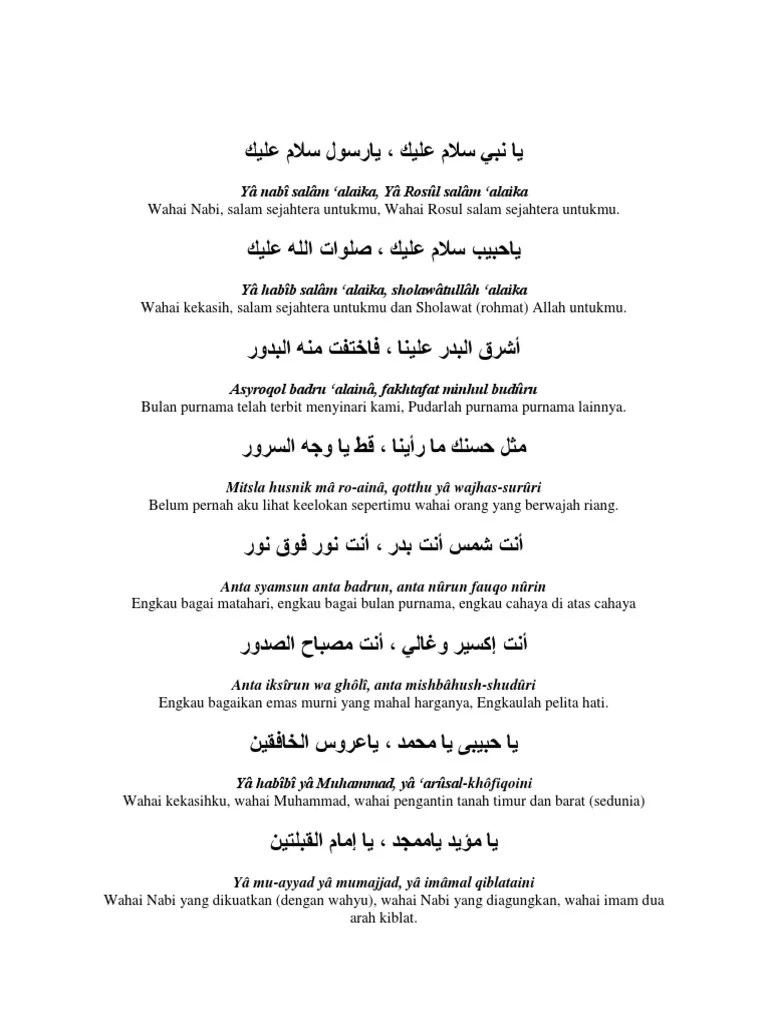 يا نبي سلام عليك ، يارسول سلام عليك
Yâ nabî salâm ‘alaika, Yâ Rosûl salâm ‘alaika
Wahai Nabi, salam sejahtera untukmu, Wahai Rosul salam sejahtera untukmu.
ياحبيب سلام عليك ، صلوات الله عليك
Yâ habîb salâm ‘alaika, sholawâtullâh ‘alaika
Wahai kekasih, salam sejahtera untukmu dan Sholawat (rohmat) Allah untukmu.
أشرق البدر علينا ، فاختفت منه البدور
Asyroqol badru ‘alainâ, fakhtafat minhul budûru
Bulan purnama telah terbit menyinari kami, Pudarlah purnama purnama lainnya.
مثل حسنك ما رأينا ، قط يا وجه السرور
Mitsla husnik mâ ro-ainâ, qotthu yâ wajhas-surûri
Belum pernah aku lihat keelokan sepertimu wahai orang yang berwajah riang.
أنت شمس أنت بدر ، أنت نور فوق نور
Anta syamsun anta badrun, anta nûrun fauqo nûrin
Engkau bagai matahari, engkau bagai bulan purnama, engkau cahaya di atas cahaya
أنت إكسير وغالي ، أنت مصباح الصدور
Anta iksîrun wa ghôlî, anta mishbâhush-shudûri
Engkau bagaikan emas murni yang mahal harganya, Engkaulah pelita hati.
يا حبيبى يا محمد ، ياعروس الخافقين
Yâ habîbî yâ Muhammad, yâ ‘arûsal-khôfiqoini
Wahai kekasihku, wahai Muhammad, wahai pengantin tanah timur dan barat (sedunia)
يا مؤيد ياممجد ، يا إمام القبلتين
Yâ mu-ayyad yâ mumajjad, yâ imâmal qiblataini
Wahai Nabi yang dikuatkan (dengan wahyu), wahai Nabi yang diagungkan, wahai imam dua
arah kiblat.